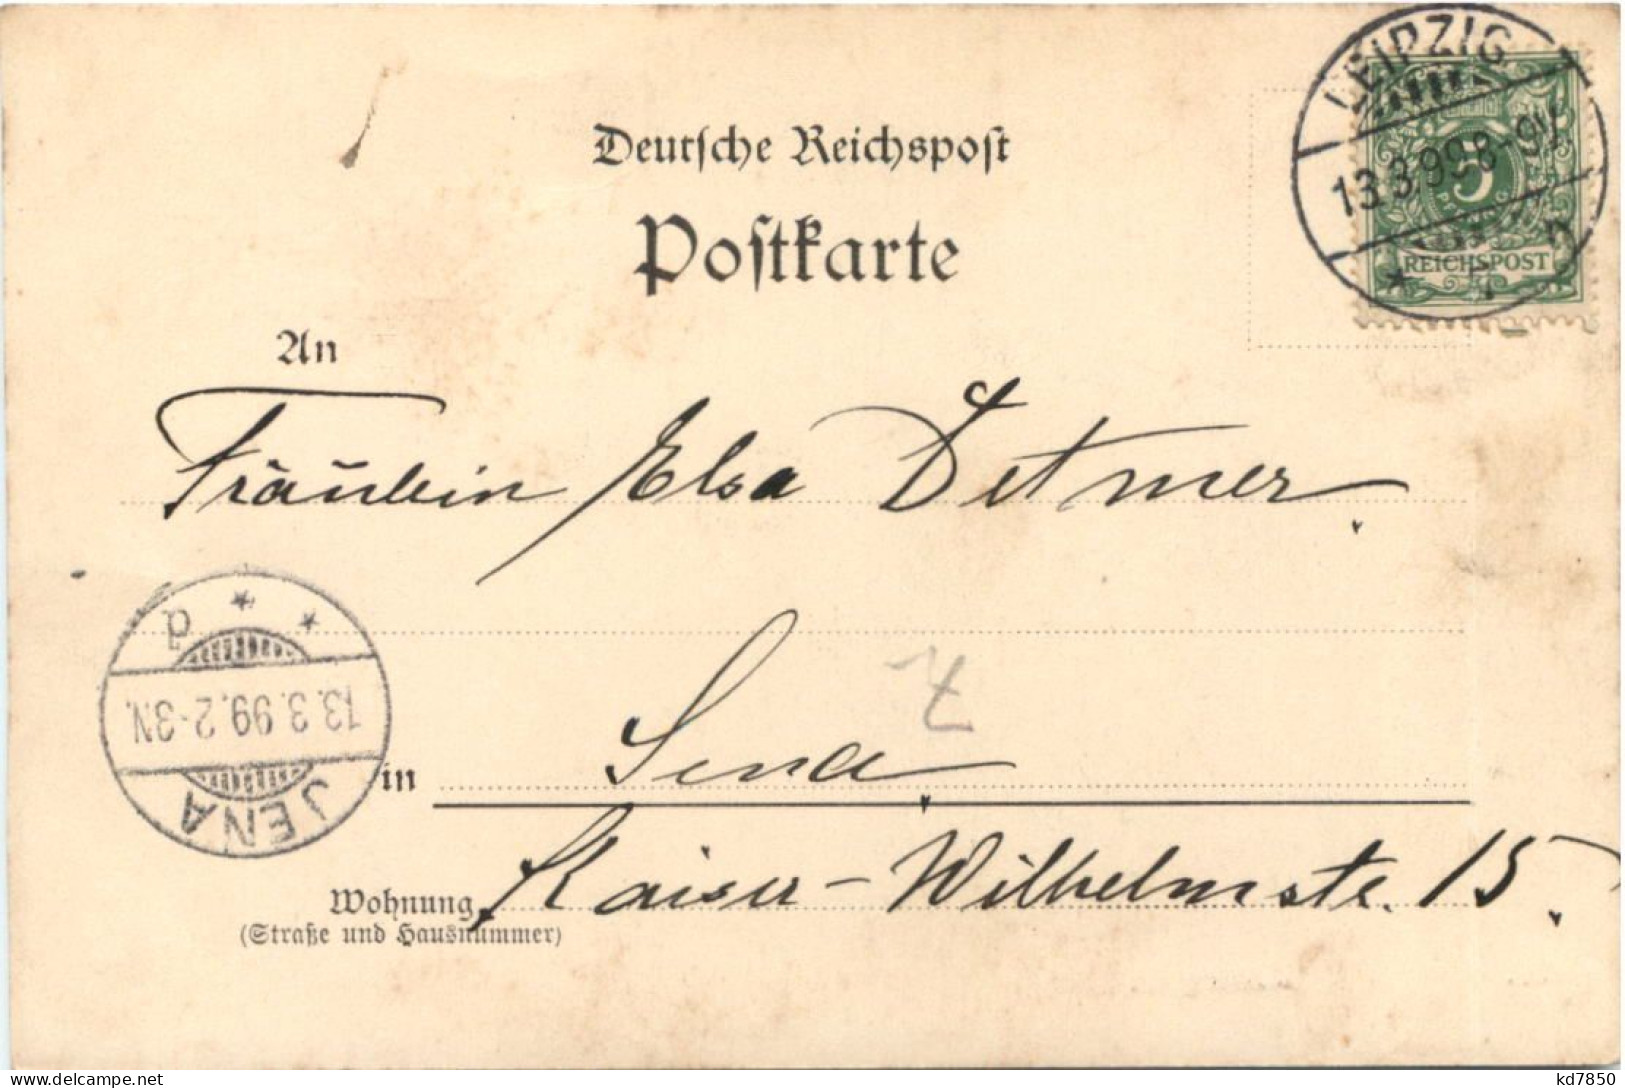 LEIPZIG
13.3.99.8-9V.
5
PFENNIG
REICHSPOST
Deutsche Reichspost
Postkarte
An
Fräulein Elsa Detmer
d
13.3.99.2-3N.
JENA
7
in Jena
Kaiser-Wilhelmstr. 15
Wohnung
(Straße und Hausnummer)
kd7850